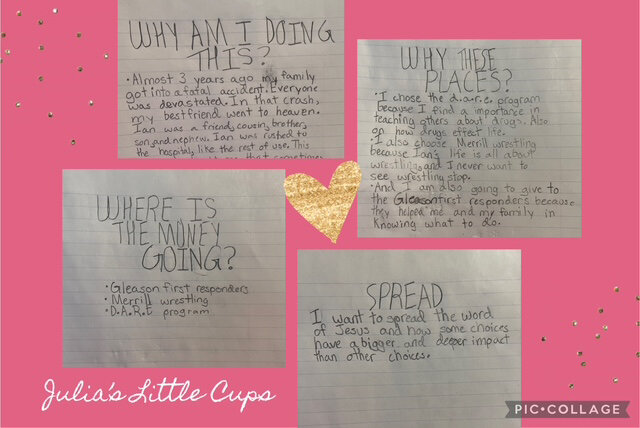 WHY AM I DOING
THIS?
• Almost 3 years ago my family
got into a fatal accident. Everyone
was devastated. In that crash,
my best friend went to heaven.
Ian was a friend, cousin, brother,
son, and nephew. Ian was rushed to
the hospital, like the rest of use. This
that sometimes
WHY THESE
PLACES?
• I chose the d.a.r.e. program
because I find a importance in
teaching others about drugs. Also
on how drugs effect life.
• I also choose Merrill wrestling
because Ian's life is all about
wrestling, and I never want to
see wrestling stop.
• And I am also going to give to
the Gleason first responders because
they helped me and my family in
knowing what to do.
WHERE IS
THE MONEY
GOING?
• Gleason first responders
• Merrill wrestling
• D.A.R.E program
SPREAD
I want to spread the word
of Jesus and how some choices
have a bigger and deeper impact
than other choices.
Julia's Little Cups
PIC•COLLAGE